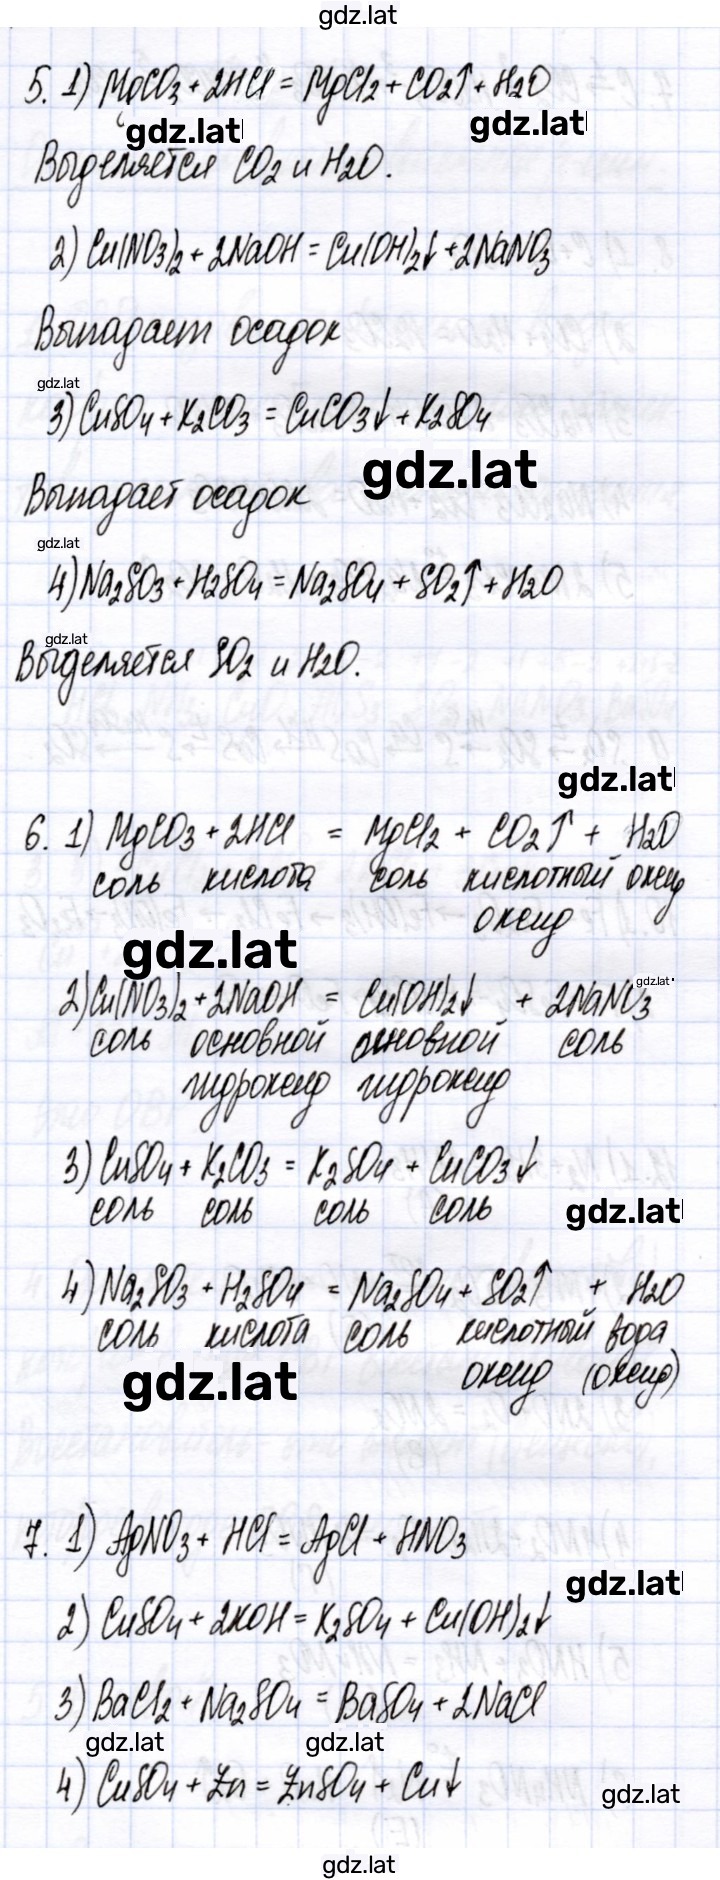 gdz.lat
5. 1) MgCO3 + 2HCl = MgCl2 + CO2↑ + H2O
gdz.lat gdz.lat
Выделяется CO2 и H2O.
2) Cu(NO3)2 + 2NaOH = Cu(OH)2↓ + 2NaNO3
Выпадает осадок
gdz.lat
3) CuSO4 + K2CO3 = CuCO3↓ + K2SO4
gdz.lat
Выпадает осадок
gdz.lat
4) Na2SO3 + H2SO4 = Na2SO4 + SO2↑ + H2O
gdz.lat
Выделяется SO2 и H2O.
gdz.lat
6. 1) MgCO3 + 2HCl = MgCl2 + CO2↑ + H2O
соль кислота соль кислотный оксид
оксид
gdz.lat
2) Cu(NO3)2 + 2NaOH = Cu(OH)2↓ + 2NaNO3
gdz.lat
соль основной основной соль
гидроксид гидроксид
3) CuSO4 + K2CO3 = K2SO4 + CuCO3↓
соль соль соль соль
gdz.lat
4) Na2SO3 + H2SO4 = Na2SO4 + SO2↑ + H2O
соль кислота соль кислотный вода
оксид (оксид)
gdz.lat
7. 1) AgNO3 + HCl = AgCl + HNO3
gdz.lat
2) CuSO4 + 2KOH = K2SO4 + Cu(OH)2↓
3) BaCl2 + Na2SO4 = BaSO4 + 2NaCl
gdz.lat gdz.lat
4) CuSO4 + Zn = ZnSO4 + Cu↓
gdz.lat
gdz.lat